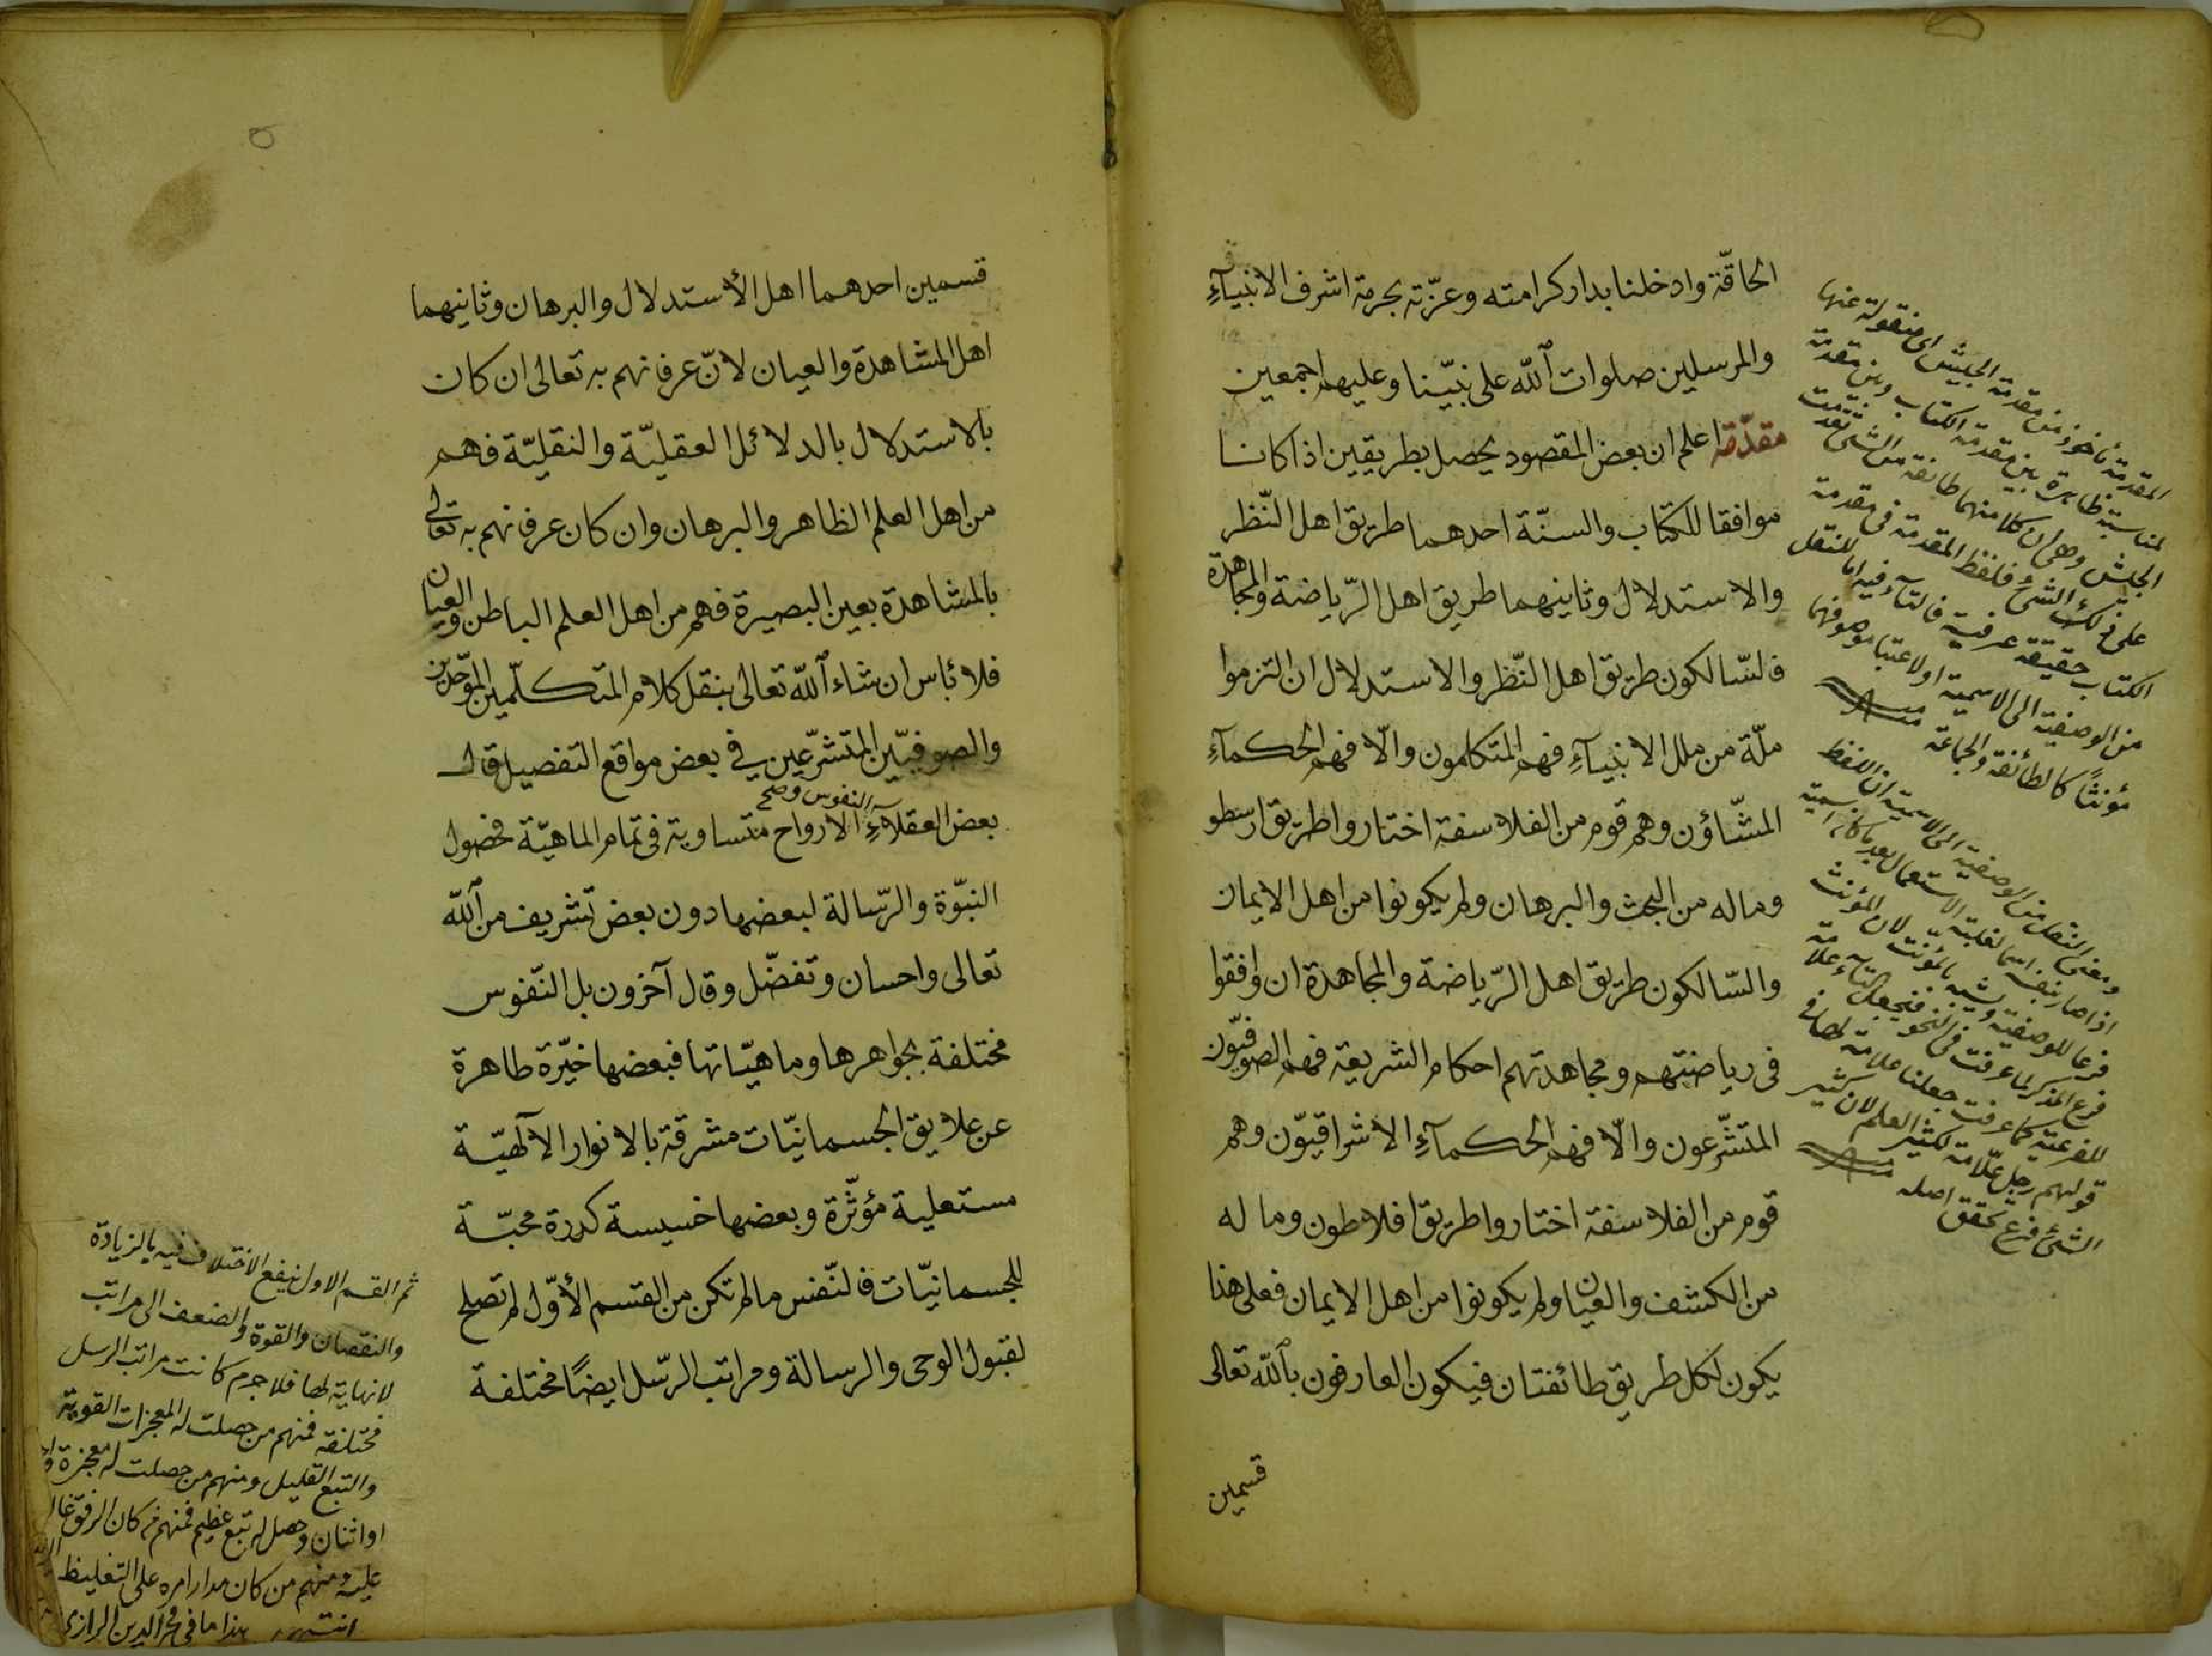 الحاقّة وادخلنا بدار كرامته وعزّته بحرمة اشرف الانبيآءِ
والمرسلين صلوات ٱللّه على نبيّنا وعليهم اجمعين
مقدّمة اعلم ان بعض المقصود يحصل بطريقين اذا كانا
موافقا للكتاب والسنّة احدهما طريق اهل النّظر
والاستدلال وثانيهما طريق اهل الرّياضة والمجاهدة
فالسّالكون طريق اهل النّظر والاستدلال ان التزموا
ملّة من ملل الانبيآءِ فهم المتكلمون والّا فهم الحكمآءِ
المشّاؤن وهم قوم من الفلاسفة اختاروا طريق ارسطو
وماله من البحث والبرهان ولم يكونوا من اهل الايمان
والسّالكون طريق اهل الرّياضة والمجاهدة ان وافقوا
فى رياضتهم ومجاهدتهم احكام الشريعة فهم الصوفيّون
المتشّرعون والّا فهم الحكمآءِ الاشراقيوّن وهم
قوم من الفلاسفة اختاروا طريق افلاطون وما له
من الكشف والعيان ولم يكونوا من اهل الايمان فعلى هذا
يكون لكل طريق طائفتان فيكون العارفون بٱللّه تعالى
قسمين
المقدمة مأخوذ من مقدمة الجيش اى منقولة عنها
لمناسبة ظاهرة بين مقدمة الكتاب وبين مقدمة
الجيش وهى ان كلا منهما طائفة من الشئ تقدمت
على ذلك الشئ فلفظ المقدمة فى مقدمة
الكتاب حقيقة عرفية فالتآء فيه اما للنقل
من الوصفية الى الاسمية او لاعتبار موصوفها
مؤنثًا كالطائفة والجماعة منه
ومعنى النقل من الوصفية الى الاسمية ان اللفظ
اذا صار بنفسه اسما لغلبة الاستعمال بعد ما كان اسمية
فرعا للوصفية ويشبه بالمؤنث لان المؤنث
فرع المذكر لما عرفت فى النحو فنجعل التآء علامة
للفرعية كما عرفت جعلنا علامة لها فى
قولهم رجل علّامة لكثير العلم لان كثير
الشئ فرع تحقق اصله منه
قسمين احدهما اهل الأستدلال والبرهان وثانيهما
اهل المشاهدة والعيان لانّ عرفانهم به تعالى ان كان
بالاستدلال بالدلائل العقليّة والنقليّة فهم
من اهل العلم الظاهر والبرهان وان كان عرفانهم به تعالى
بالمشاهدة بعين البصيرة فهم من اهل العلم الباطن والعيان
فلا بأس ان شاء ٱللّه تعالى بنقل كلام المتكلّمين الموّحدين
والصوفيّين المتشرّعين فى بعض مواقع التفصيل قال
النفوس و صح
بعض العقلآءِ الارواح متساوية فى تمام الماهيّة فحصول
النبّوة والرّسالة لبعضها دون بعض تشريف من ٱللّه
تعالى واحسان وتفضّل وقال آخرون بل النّفوس
مختلفة بجواهرها وماهيّاتها فبعضها خيّرة طاهرة
عن علايق الجسمانيّات مشرقة بالانوار الآلهيّة
مستعلية مؤثّرة وبعضها خسيسة كدرة محبّة
للجسمانيّات فالنّفس مالم تكن من القسم الأوّل لم تصلح
لقبول الوحى والرسالة ومراتب الرّسل ايضًا مختلفة
ثم القسم الاول يقع الاختلاف فيه بالزيادة
والنقصان والقوة والضعف الى مراتب
لا نهاية لها فلا جرم كانت مراتب الرسل
مختلفة فمنهم من حصلت له المعجزات القوية
والتبع القليل ومنهم من حصلت له معجزة
او اثنان وحصل له تبع عظيم فمنهم من كان الرفق
عليه ومنهم من كان مدار امره على التغليظ
انتهى هذا ما فى فخر الدين الرازى